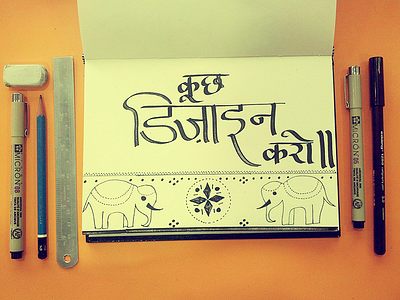 कुछ
डिज़ाइन
करो॥
MICRON 08
MICRON 05